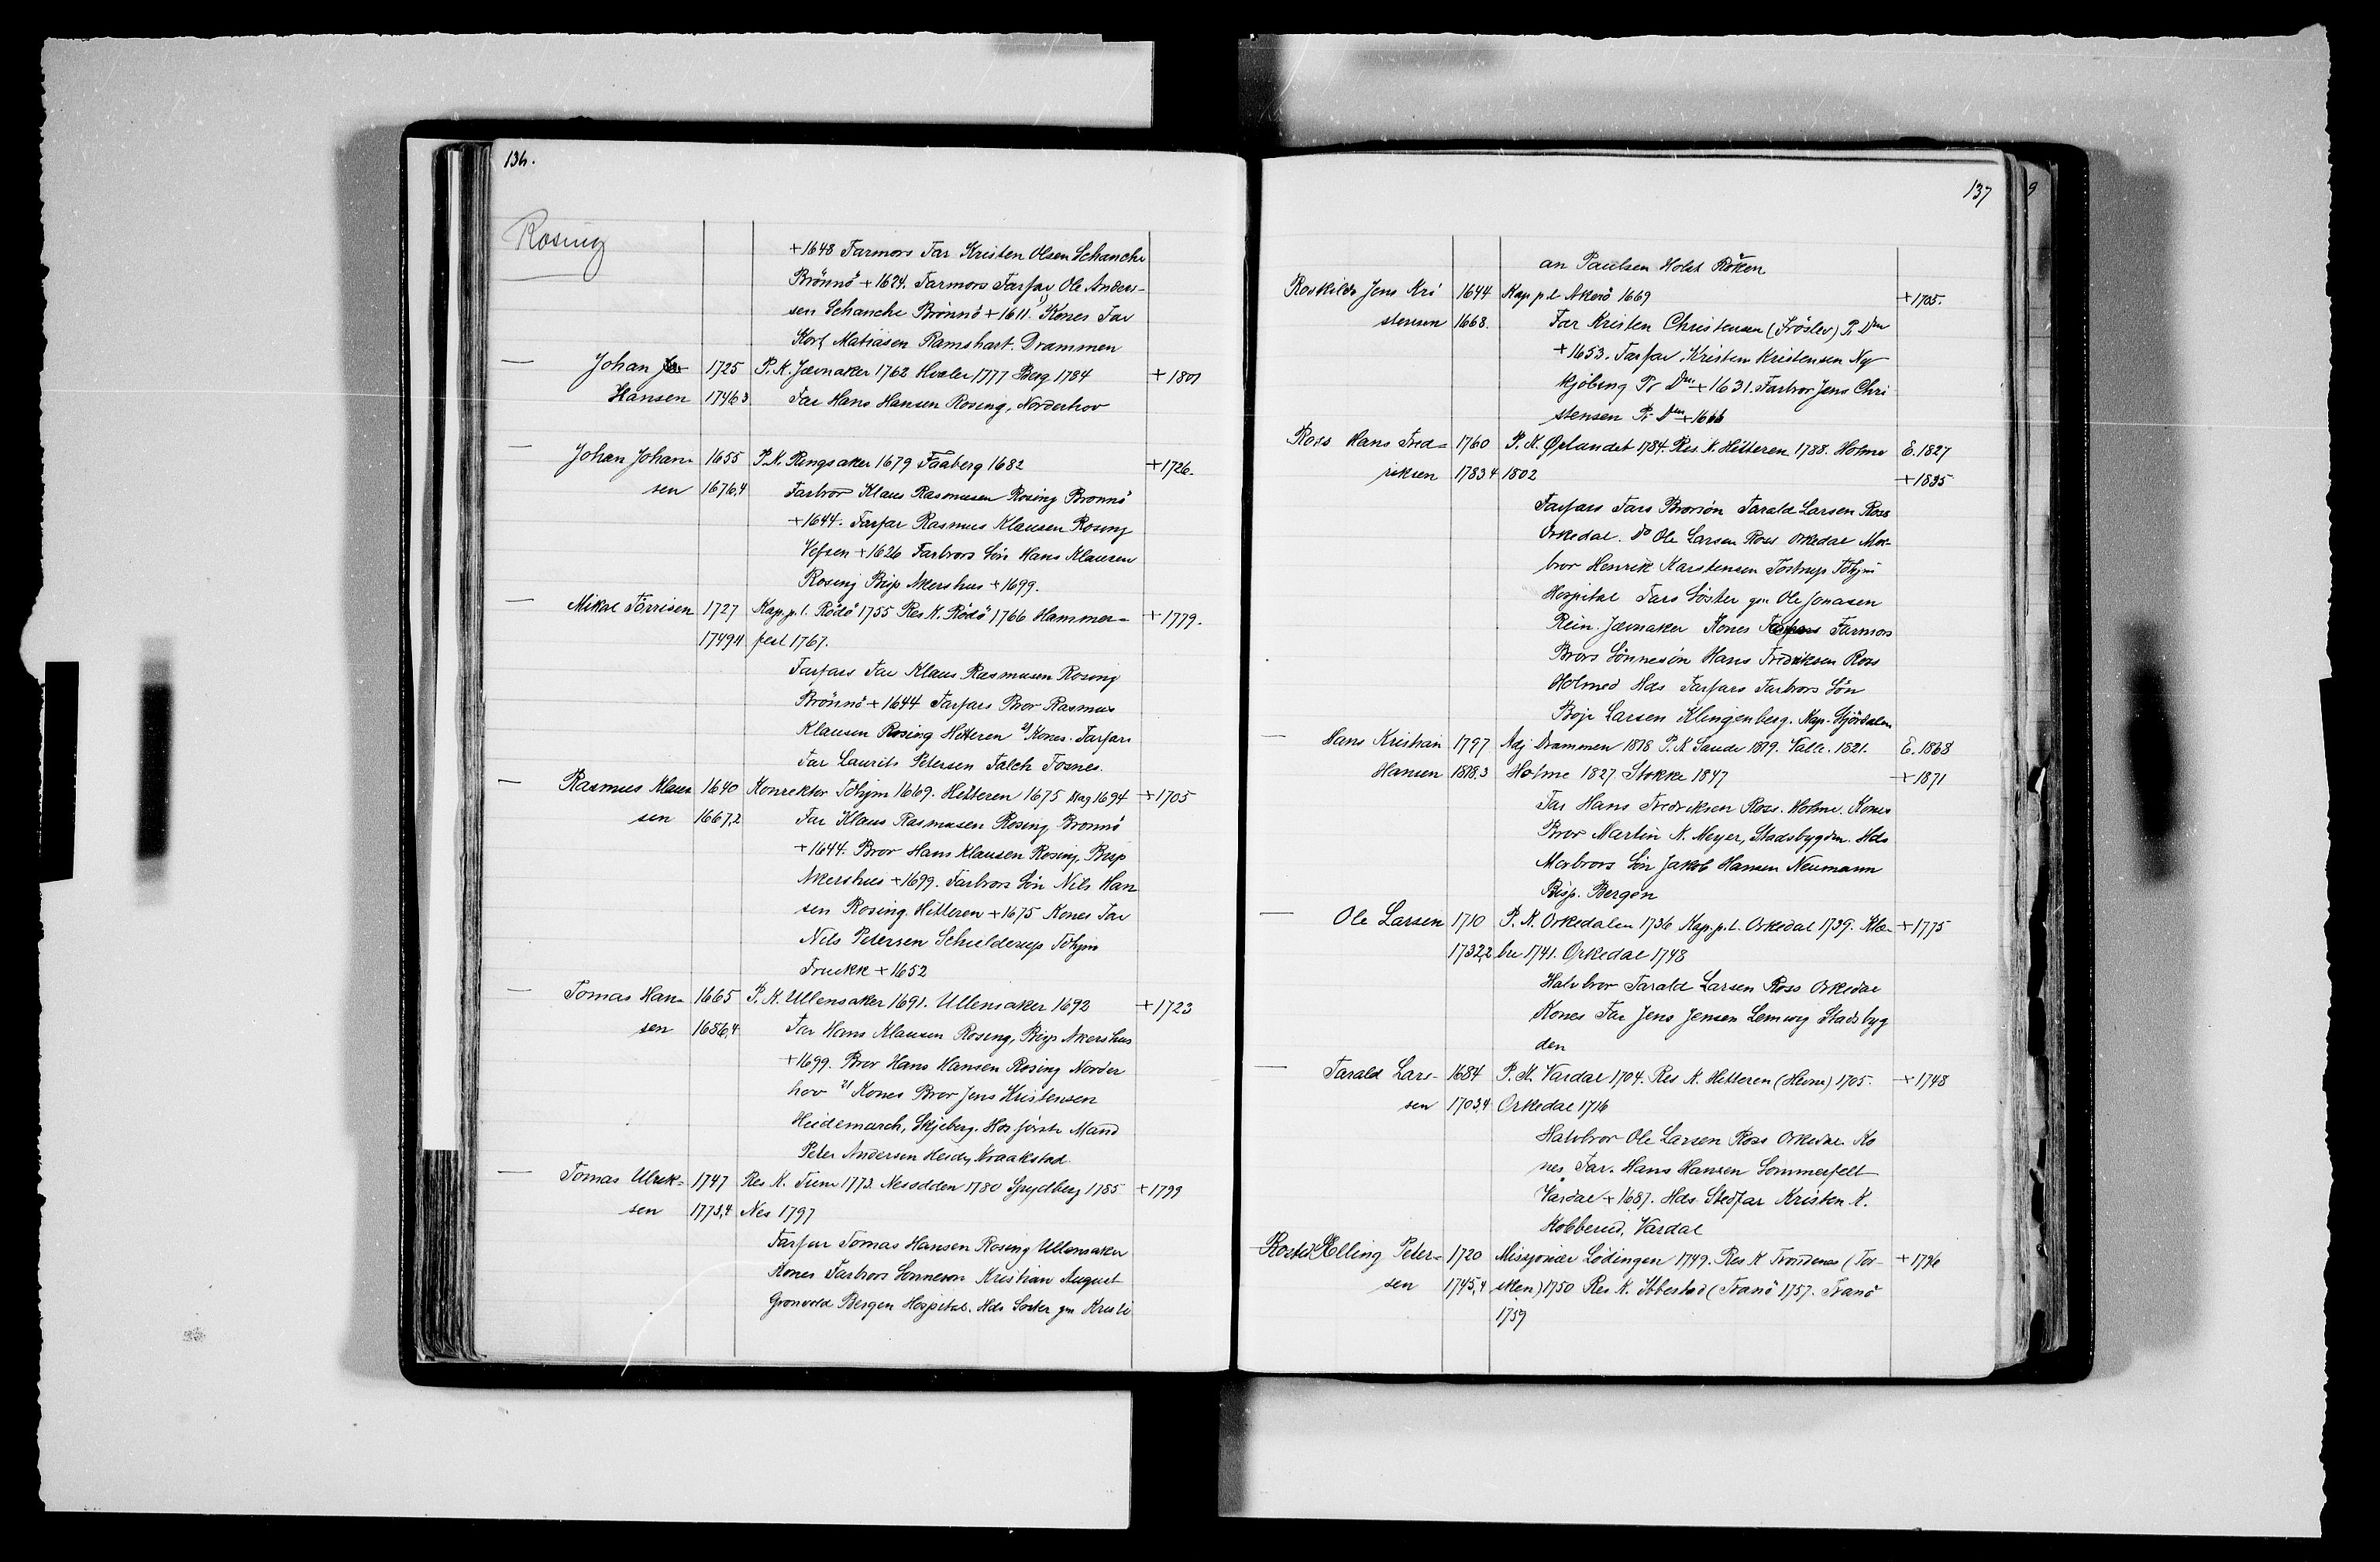 136.
Rosing
+1648 Farmors Far Kristen Olsen Schanche
Brönnö +1624. Farmors Farfar Ole Anders-
sen Schanche Brönnö +1611. 1) Kones Far
Kort Matiasen Ramshart. Drammen
— Johan 1725 P. K. Jævnaker 1762 Hvaler 1777 Berg 1784 +1801
Hansen 1746,3 Far Hans Hansen Rosing, Norderhov
— Johan Johan- 1655 P. K. Ringsaker 1679 Faaberg 1682 +1726.
sen 1676,4 Farbror Klaus Rasmusen Rosing Brönnö
+1644. Farfar Rasmus Klausen Rosing
Vefsen +1626 Farbrors Sön Hans Klausen
Rosing Bisp Akershus +1699.
— Mikal Törrisen 1727 Kap. p. l. Rödö 1755 Res K. Rödö 1766 Hammer- +1779.
1749,4 fest 1767.
Farfars Far Klaus Rasmusen Rosing
Brönnö +1644 Farfars Bror Rasmus
Klausen Rosing Hitteren 2) Kones Farfars
Far Laurits Petersen Falch Fosnes.
— Rasmus Klau- 1640 Konrektor Tohjm 1669. Hitteren 1675 1694 +1705
sen 1667,2 Far Klaus Rasmusen Rosing Brönnö
+1644. Bror Hans Klausen Rosing, Bisp
Akershus +1699. Farbrors Sön Nils Han
sen Rosing. Hitteren +1675 Kones Far
Nils Petersen Schielderup Tohjm
+1652
— Tomas Han- 1665 P. K. Ullensaker 1691. Ullensaker 1692 +1723
sen 1686,4 Far Hans Klausen Rosing, Bisp Akershus
+1699. Bror Hans Hansen Rosing Norder
hov 2) Kones Bror Jens Kristensen
Heidemarch, Skjeberg. Hos förste Mand
Peter Andersen Kraakstad.
— Tomas Ulrik- 1747 Res. K. Tune 1773. Nesodden 1780 Spydberg 1785 +1799
sen 1773,4 Nes 1797
Farfar Tomas Hansen Rosing Ullensaker
Kones Farbrors Sönneson Kristian August
Grönvold Bergen Hospital. Hds Soster gm Kristi
137
an Paulsen Holst Röken
Roskilde Jens Kri 1644 Kap p. l. Akerö 1669 +1705.
stensen 1668. Far Kristen Christensen (Fröslev) P. Dm
+1653. Farfar Kristen Kristensen Ny
kjöbing Pr Dm +1631. Farbror Jens Chri
stensen Pr Dm +1666
Ross Hans Fred- 1760 P. K. Ørlandet 1784. Res. K. Hitteren 1788. Holme E. 1827
riksen 1783,4 1802 +1835
Farfars Fars Brorsön Tarald Larsen Ross
Orkedal. Do Ole Larsen Ross Orkedal Mor-
bror Henrik Karstensen Tostrup Tohjm
Hospital Fars Söster gm Ole Jonasen
Rein. Jævnaker Kones Farmors
Brors Sönnesön Hans Fredriksen Ross
Holmed Hds Farfars Farbrors Sön
Boje Larsen Klingenberg. Kap. Stjördalen
— Hans Kristian 1797 Adj Drammen 1818 P. K Sande 1819. Valle. 1821. E. 1868
Hansen 1818,3 Holme 1827 Stokke 1847 +1871
Far Hans Fredriksen Ross. Holme. Kones
Bror Martin K. Meyer, Stadsbygden. Hds
Morbrors Sön Jakob Hansen Neumann
Bisp. Bergen
— Ole Larsen 1710 P. K. Orkedalen 1736 Kap. p. l. Orkedal 1739. Klæ- +1775
1732,2 bu 1741. Orkedal 1748
Halvbror Tarald Larsen Ross Orkedal
Kones Far Jens Jensen Lemvig Stadsbyg
den
— Tarald Lars- 1684 P. K. Vardal 1704. Res K. Hitteren (Hevne) 1705. +1748
sen 1703,4 Orkedal 1716
Halvbror Ole Larsen Ross Orkedal. Ko
nes Far. Hans Hansen Sommerfelt
Vardal +1687. Hds Stedfar Kristen K.
Kobberud, Vardal
Rosted Elling Peter- 1720 Missjonær Lödingen 1749. Res K Trondenes (Tor- +1796
sen 1745,4 sken) 1750 Res K. Ibbestad (Tranö 1757. Tranö
1759